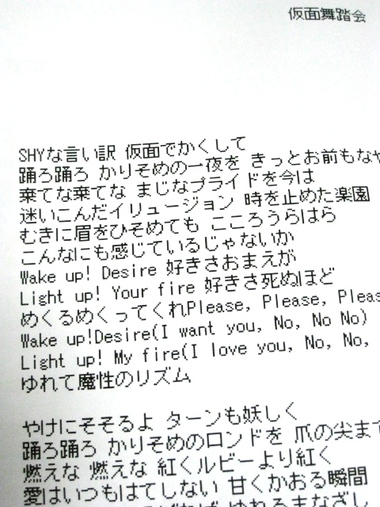 仮面舞踏会
SHYな言い訳 仮面でかくして
踊ろ踊ろ かりそめの一夜を きっとお前もなや
棄てな棄てな まじなプライドを今は
迷いこんだイリュージョン 時を止めた楽園
むきに眉をひそめても こころうらはら
こんなにも感じているじゃないか
Wake up! Desire 好きさおまえが
Light up! Your fire 好きさ死ぬほど
めくるめくってくれPlease, Please, Pleas
Wake up!Desire(I want you, No, No No)
Light up! My fire(I love you, No, No,
ゆれて魔性のリズム
やけにそそるよ ターンも妖しく
踊ろ踊ろ かりそめのロンドを 爪の尖まで
燃えな 燃えな 紅くルビーより紅く
愛はいつもはてしない 甘くかおる瞬間
ゆれるまなざし